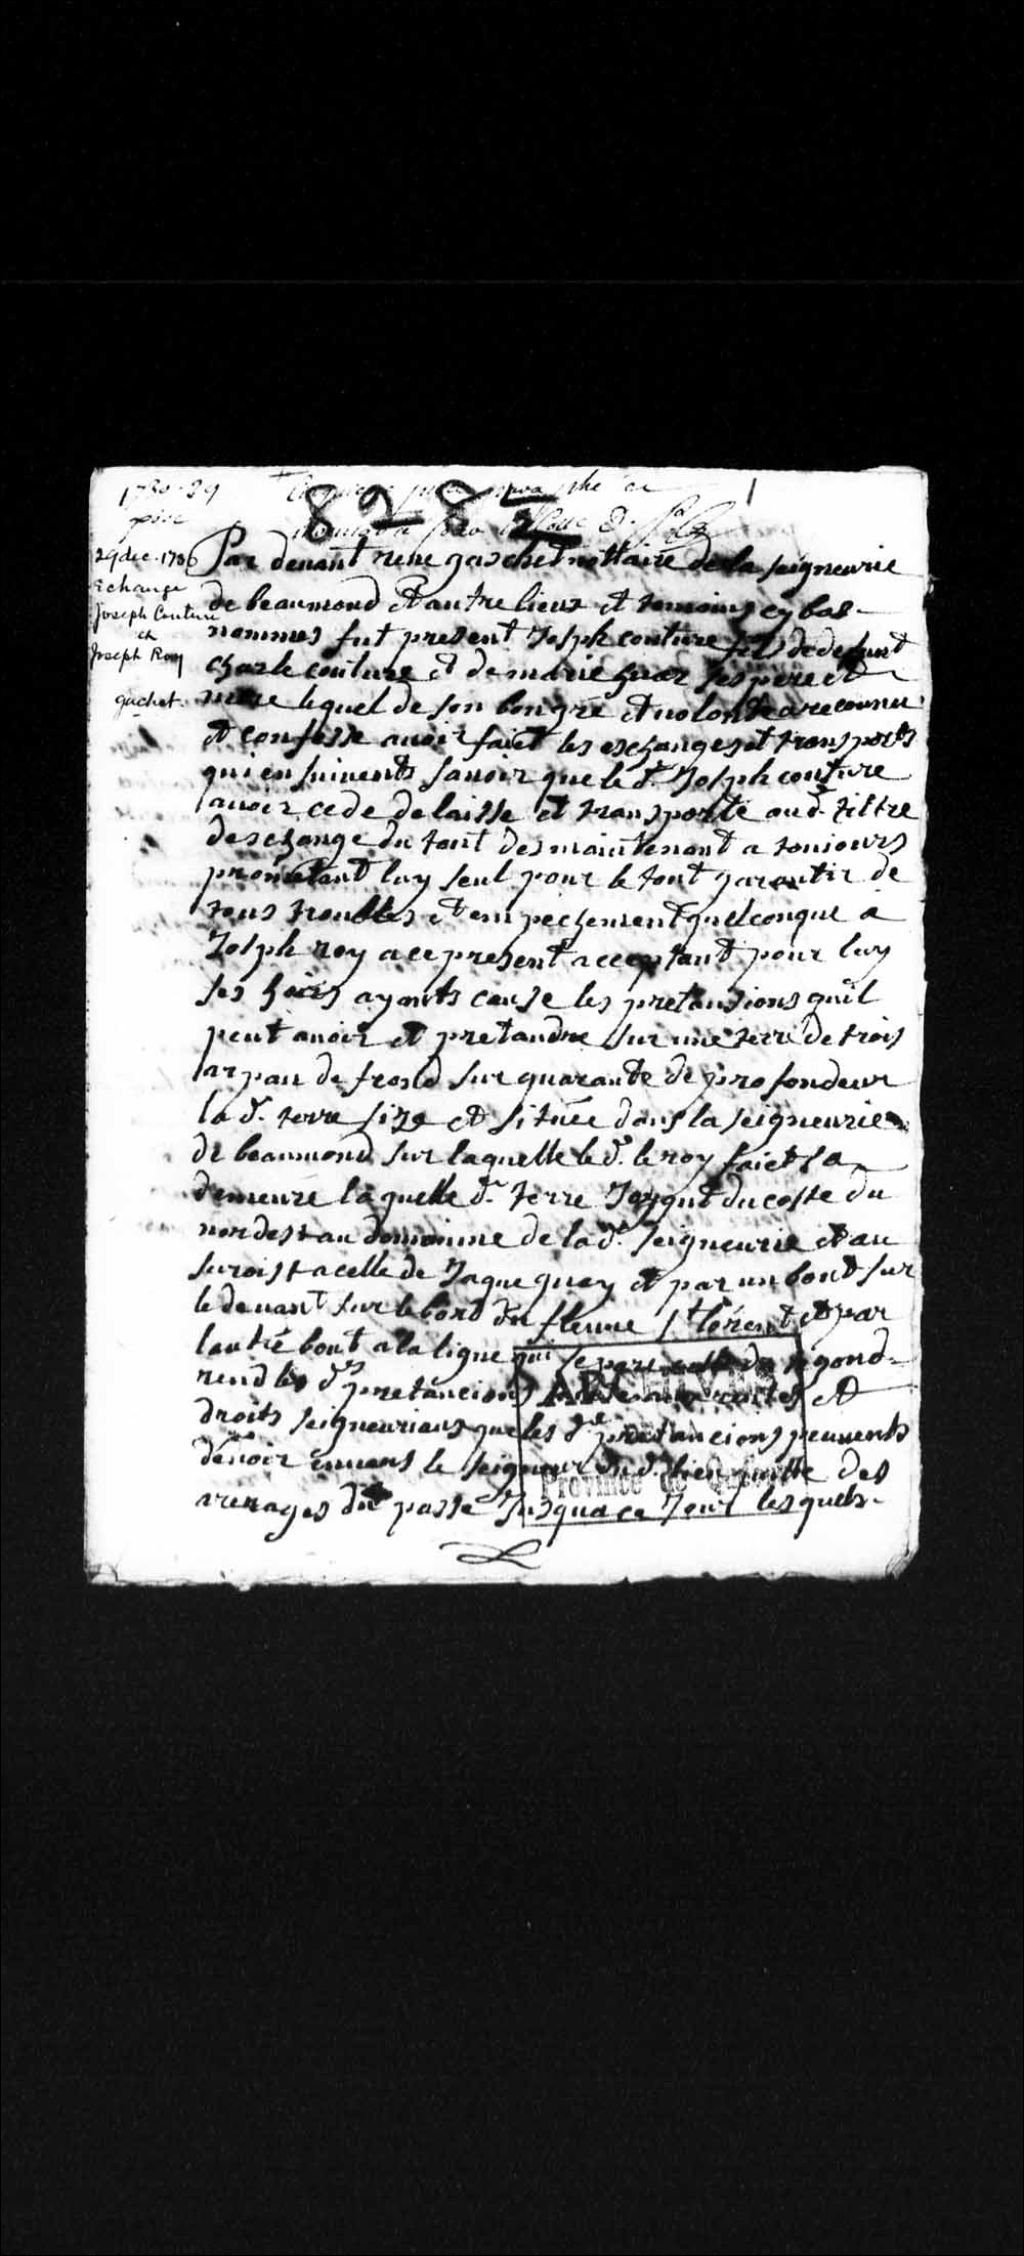 1730-29
1
8282
29 dec. 1736
Echange
Joseph Couture
et
Joseph Roy
gachet.
Par devant rene gaschet nottaire de la seigneurie
de beaumond et autre lieux et temoins cy bas
nommes fut present Joseph couture fils de defunt
charle couture et de marie huar ses pere et
mere lequel de son bon gré et volonte a reconneu
et confesse avoir faict les eschanges et transports
qui en suivents savoir que le d. Joseph couture
avoir cede delaisse et transporté au d. tiltre
deschange du tout des maintenant a toujours
prometant luy seul pour le tout garantir de
tous troubles et empechement quelconque a
Joseph roy a ce present acceptant pour luy
ses hoirs ayants cause les pretansions quil
peut avoir et pretandre sur une terre de trois
arpan de frond sur quarante de profondeur
la d. terre size et situee dans la seigneurie
de beaumond sur laquelle le d. le roy faict sa
demeure laquelle d. terre Joygnt du coste du
nordest au domainne de la d. seigneurie et au
surois t a celle de Jaque guay et par un bout sur
le devant sur le bord du fleuve st lorent et par
lautre bout a la ligne qui separe du segond
rend les d. pretancions rentes et
droits seigneuriaux que les d. pretancions peuvents
devoir envers le seigneur du d. lieu quitte des
arerages du passe Jusqua ce Jour lesquels
ARCHIVES
Province de Québec